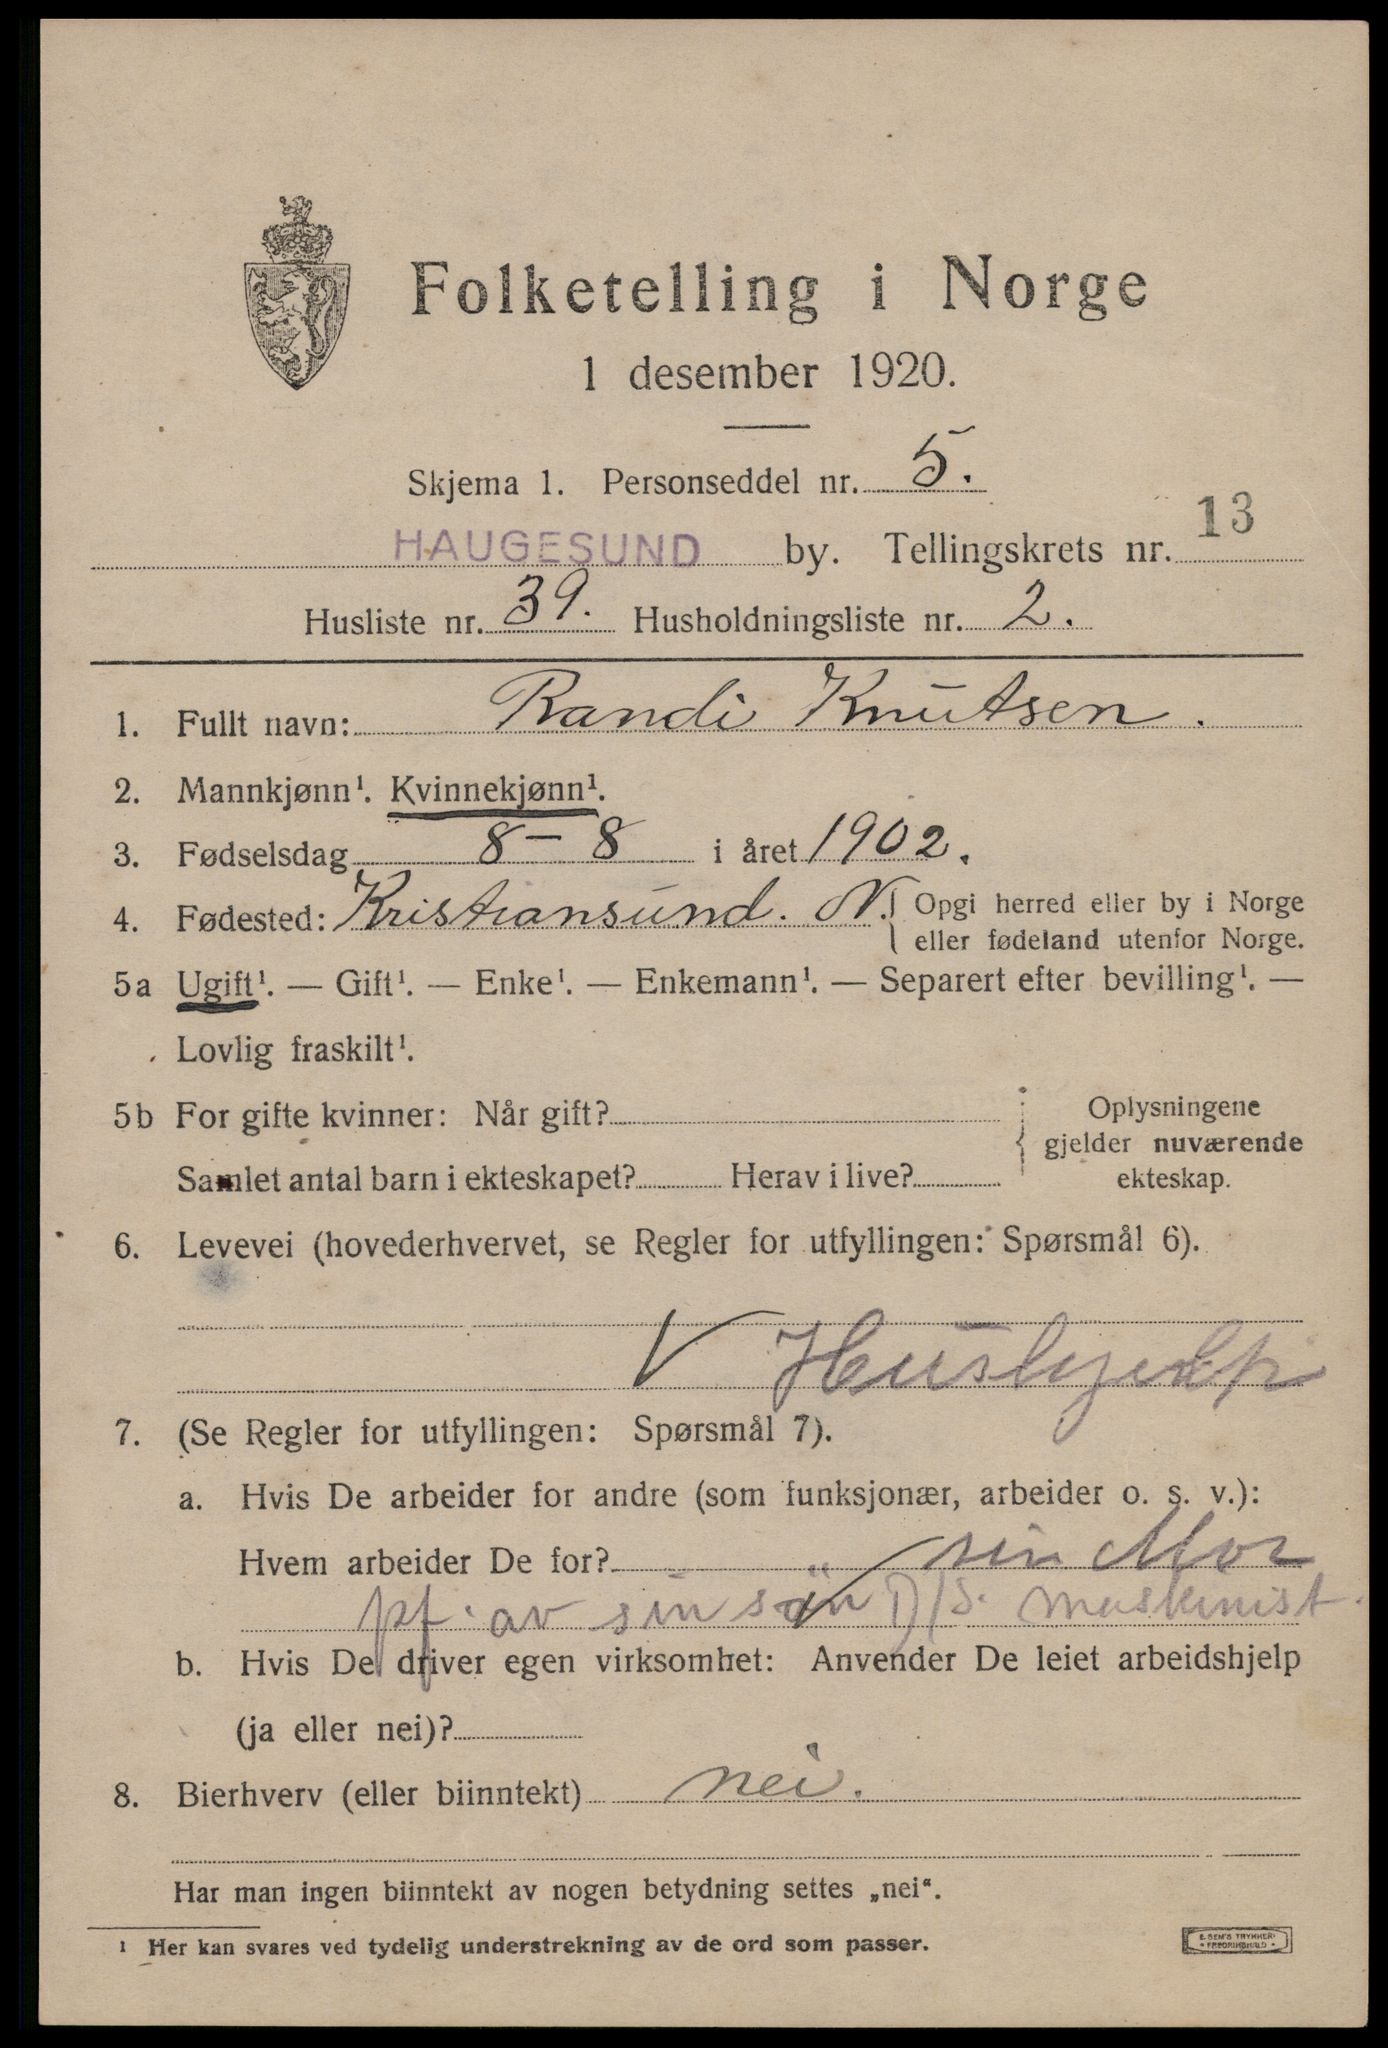 Folketelling i Norge
1 desember 1920.
Skjema 1. Personseddel nr. 5.
HAUGESUND by. Tellingskrets nr. 13
Husliste nr. 39. Husholdningsliste nr. 2.
1. Fullt navn: Randi Knutsen.
2. Mannkjønn¹. Kvinnekjønn¹.
3. Fødselsdag 8-8 i året 1902.
4. Fødested: Kristiansund. N. Opgi herred eller by i Norge
eller fødeland utenfor Norge.
5a Ugift¹. — Gift¹. — Enke¹. — Enkemann¹. — Separert efter bevilling¹. —
Lovlig fraskilt¹.
5b For gifte kvinner: Når gift?
Samlet antal barn i ekteskapet? Herav i live?
Oplysningene
gjelder nuværende
ekteskap.
6. Levevei (hovederhvervet, se Regler for utfyllingen: Spørsmål 6).
V Hushjelp
7. (Se Regler for utfyllingen: Spørsmål 7).
a. Hvis De arbeider for andre (som funksjonær, arbeider o. s. v.):
Hvem arbeider De for? sin Mor
pf. av sin sön D/S. maskinist.
b. Hvis De driver egen virksomhet: Anvender De leiet arbeidshjelp
(ja eller nei)?
8. Bierhverv (eller biinntekt) nei.
Har man ingen biinntekt av nogen betydning settes „nei“.
¹ Her kan svares ved tydelig understrekning av de ord som passer.
E. SEM'S TRYKKERI
FREDRIKSHALD